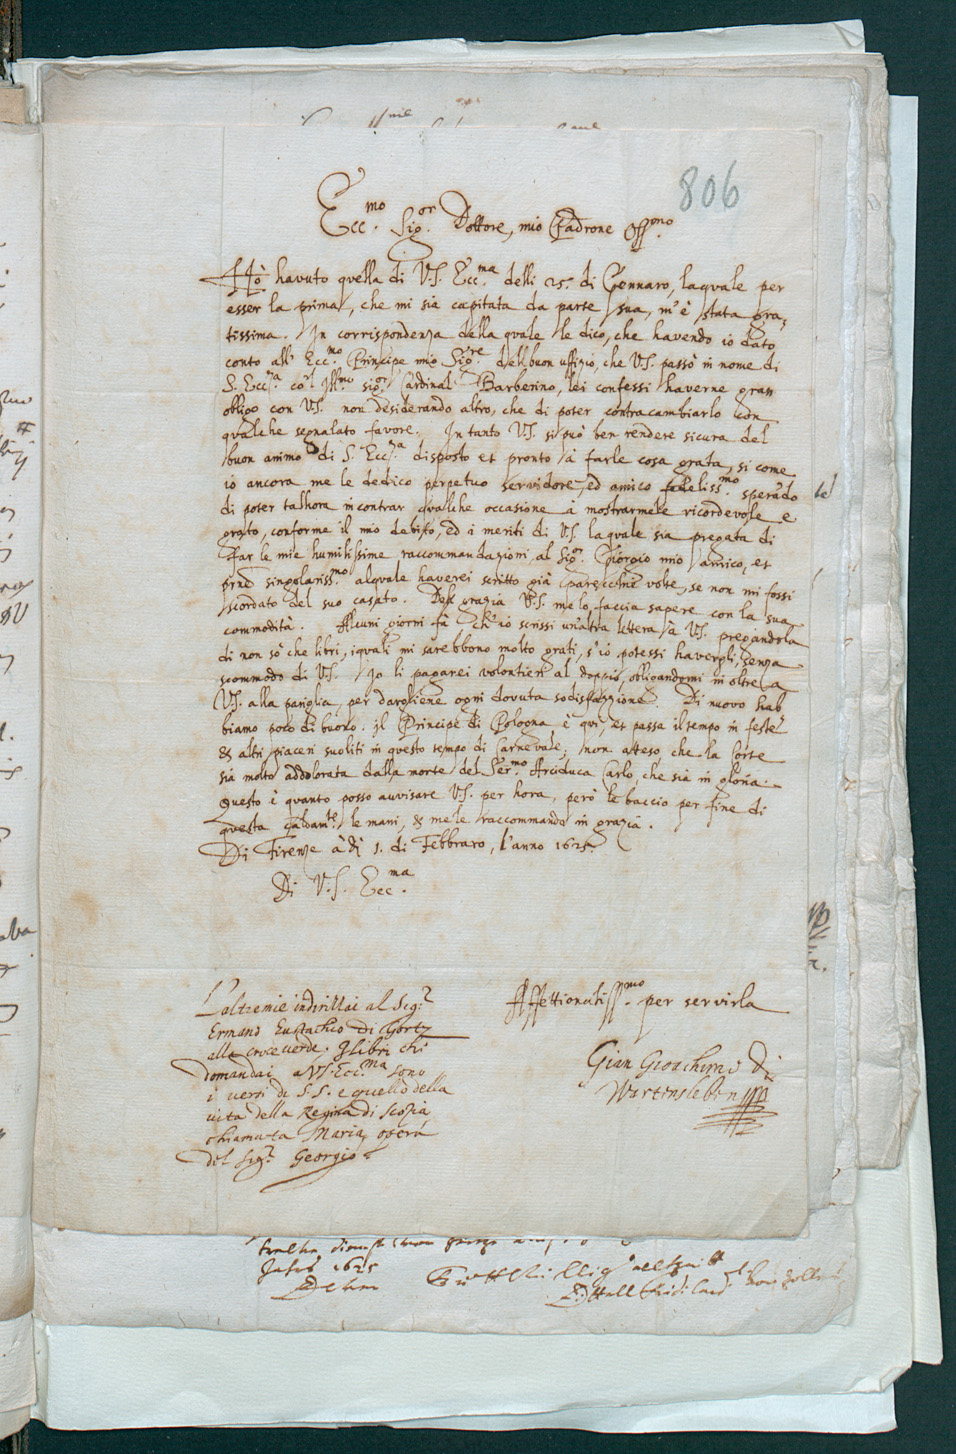 806
Ecc.mo Sig.or Dottore, mio Padrone oss.mo
Hò havuto quella di V.S. Ecc.ma delli 25. di Gennaro, laquale per
esser la prima, che mi sia capitata da parte sua, m'è stata gra,
tissima. In corrispondenza della quale le dico, che havendo io dato
conto all' Ecc.mo Principe mio Sig.re dell buon uffizio, che V.S. passò in nome di
S. Ecc.za co'l Ill.mo sig.r Cardinal Barberino, lei confessi haverne gran
obligo con V.S. non desiderando altro, che di poter contracambiarlo con
qualche segnalato favore. In tanto V.S. si può ben rendere sicura del
buon animo di S. Ecc.za disposto et pronto à farle cosa grata, si come
io ancora me le dedico perpetuo servidore, ed amico fedeliss.mo sperado
di poter talhora incontrar qualche occasione à mostrarmele ricordevole e
grato, conforme il mio debito, ed i meriti di V.S. laquale sia pregata di
far le mie humilissime raccommandazioni al Sig.r Giorgio mio amico, et
prne singolariss.mo alquale haverei scritto già parecchie volte, se non mi fossi
scordato del suo casato. Dek grazia V.S. me lo faccia sapere con la sua
commodità. Alcuni giorni fà ch'io scrissi un'atra lettera à V.S. pregandola
di non sò che libri, iquali mi sarebbono molto grati, s'io potessi havergli, senza
scommodo di V.S. Io li pagarei volontieri al doppio, obligandomi in oltre a
V.S. alla pariglia, per dargliene ogni dovuta sodisfazzione. Di nuovo hab
biamo poco di buono. il Principe di Pologna è qui, et passa il tempo in feste
& altri piaceri suoliti in questo tempo di Carnevale, non atteso, che la Corte
sia molto addolorata dalla morte del Ser.mo Arciduca Carlo, che sia in gloria.
Questo è quanto posso auvisare V.S. per hora, però le baccio per fine di
questa caldam.te le mani, & me le raccommando in grazia.
Di Firenze à dì 1. di Febbraro, l'anno 1625.
Di V.S. Ecc.ma
Affettionatiss.mo per servirla
Gian Gioachimo di
Wartensleben
L'altre mie indirillai al Sig.r
Ermano Eustachio di Gortz
alla croce verde. I libri chi
domandai a V.S. Ecc.ma sono
i versi di S.S. e quello della
vita della Regina di Scozia
chiamata Maria, opera
del Sig.r Georgio
1625